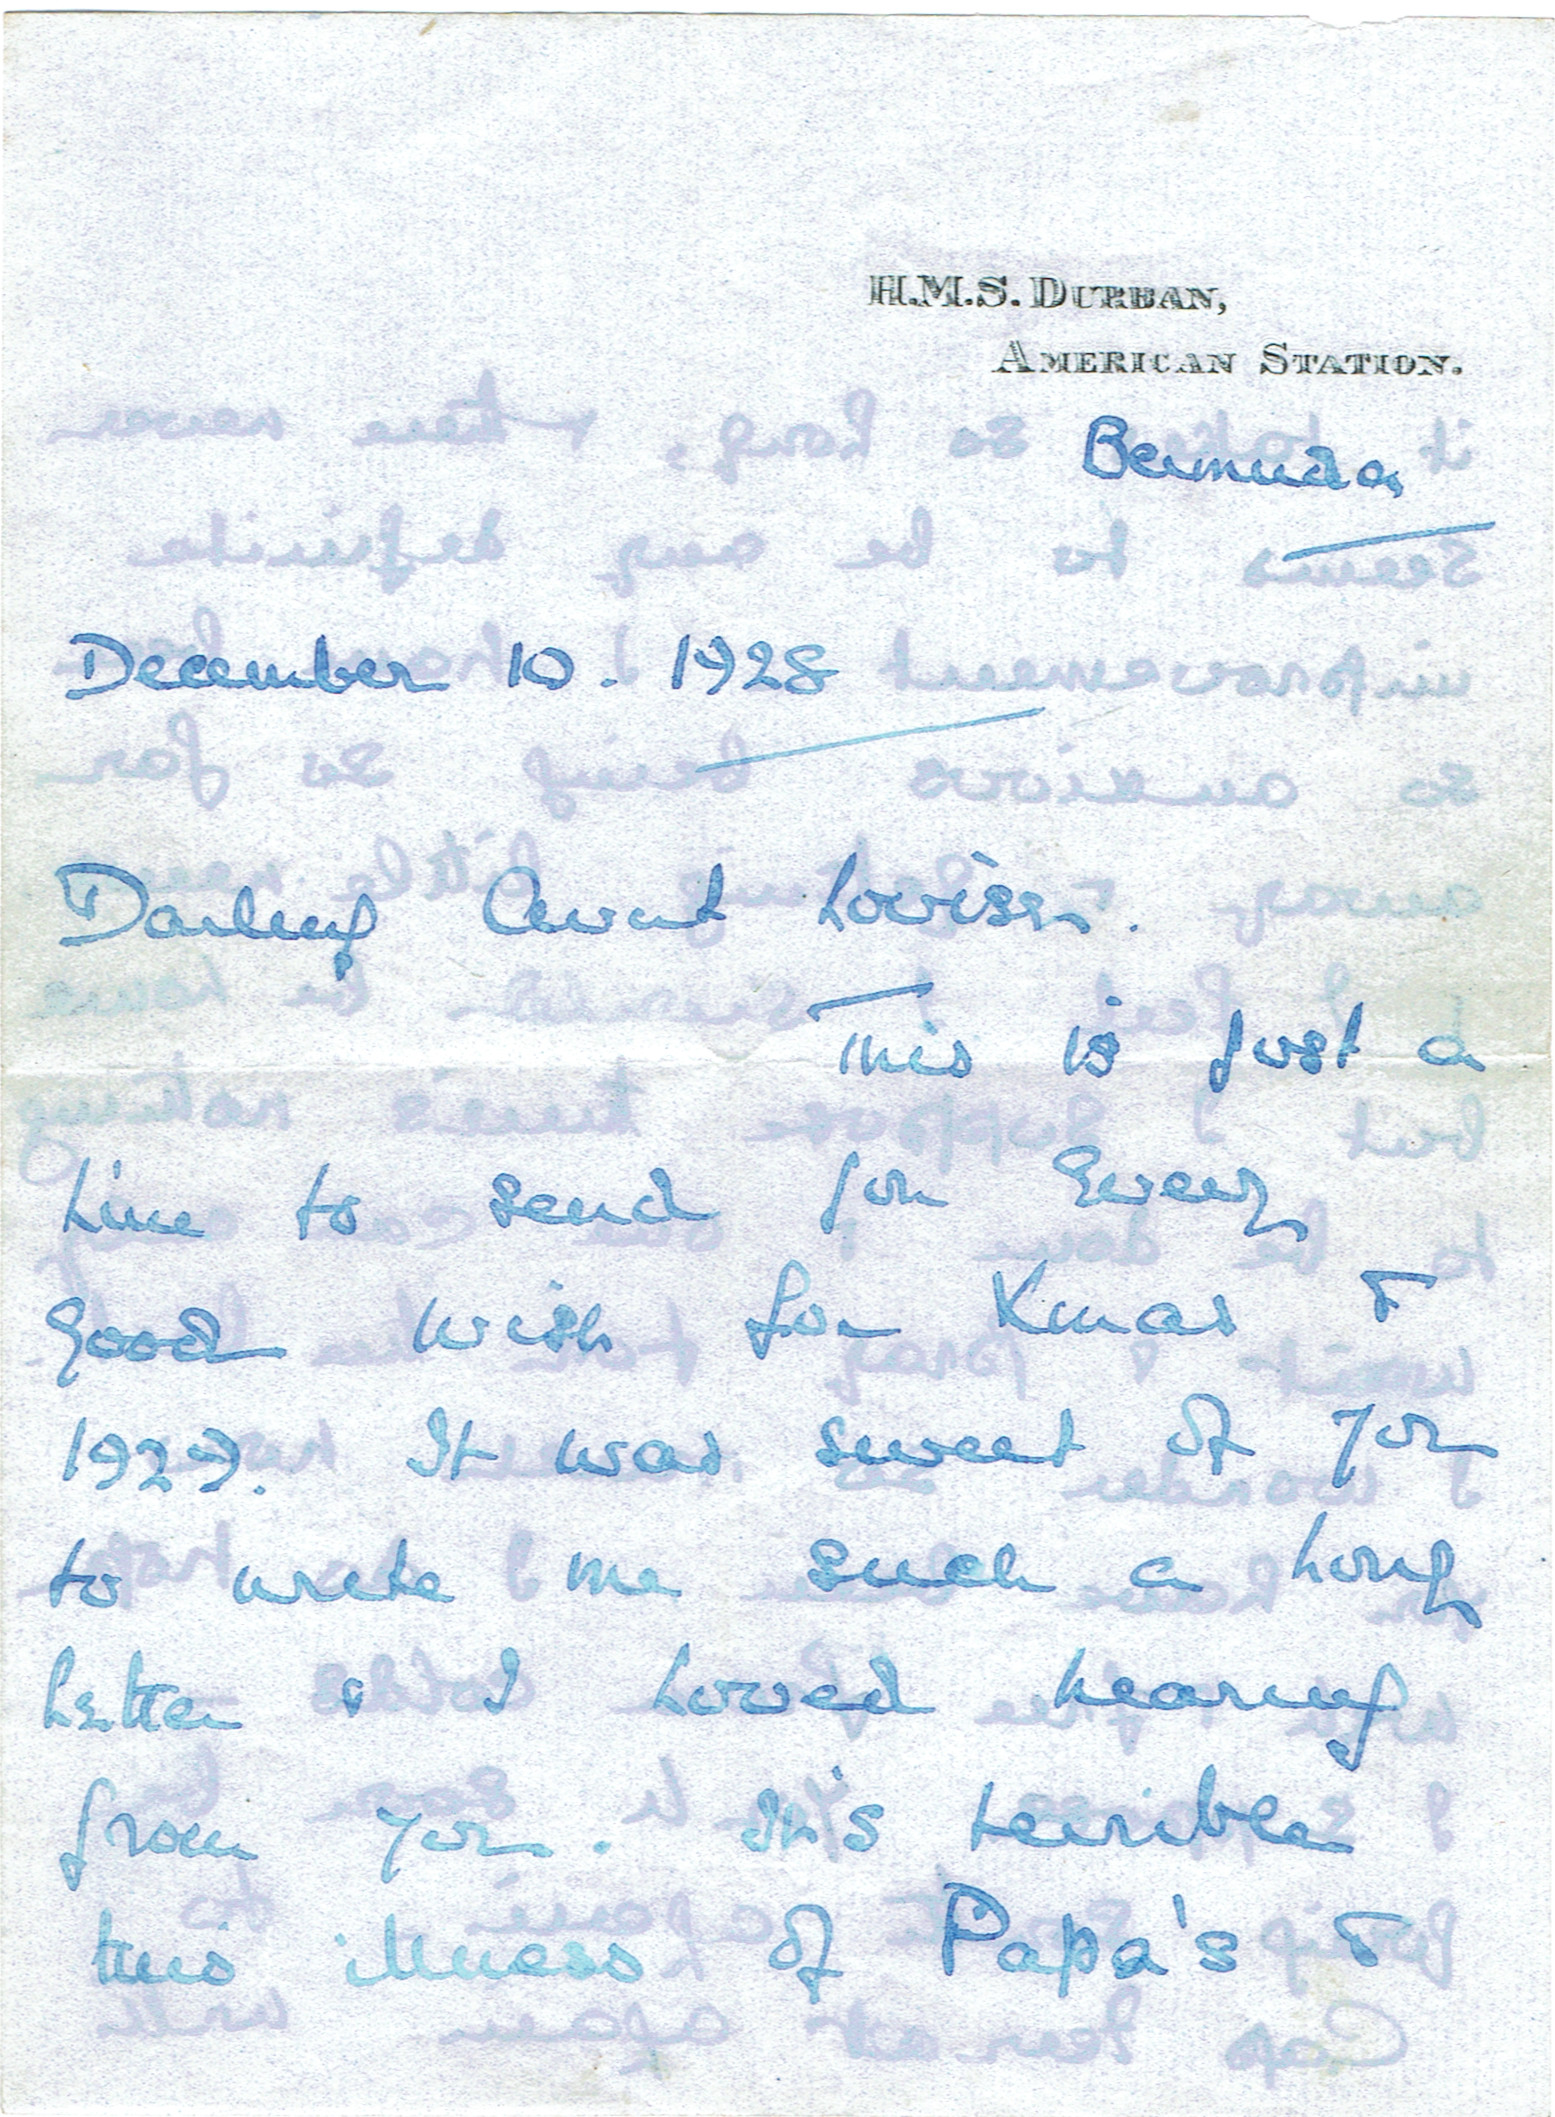 H.M.S. DURBAN,
AMERICAN STATION.
Bermuda
December 10. 1928
Darling Aunt Louise.
This is just a
line to send you Every
good wish for Xmas &
1929. It was sweet of you
to write me such a long
letter & I loved hearing
from you. It's terrible
this illness of Papa's &